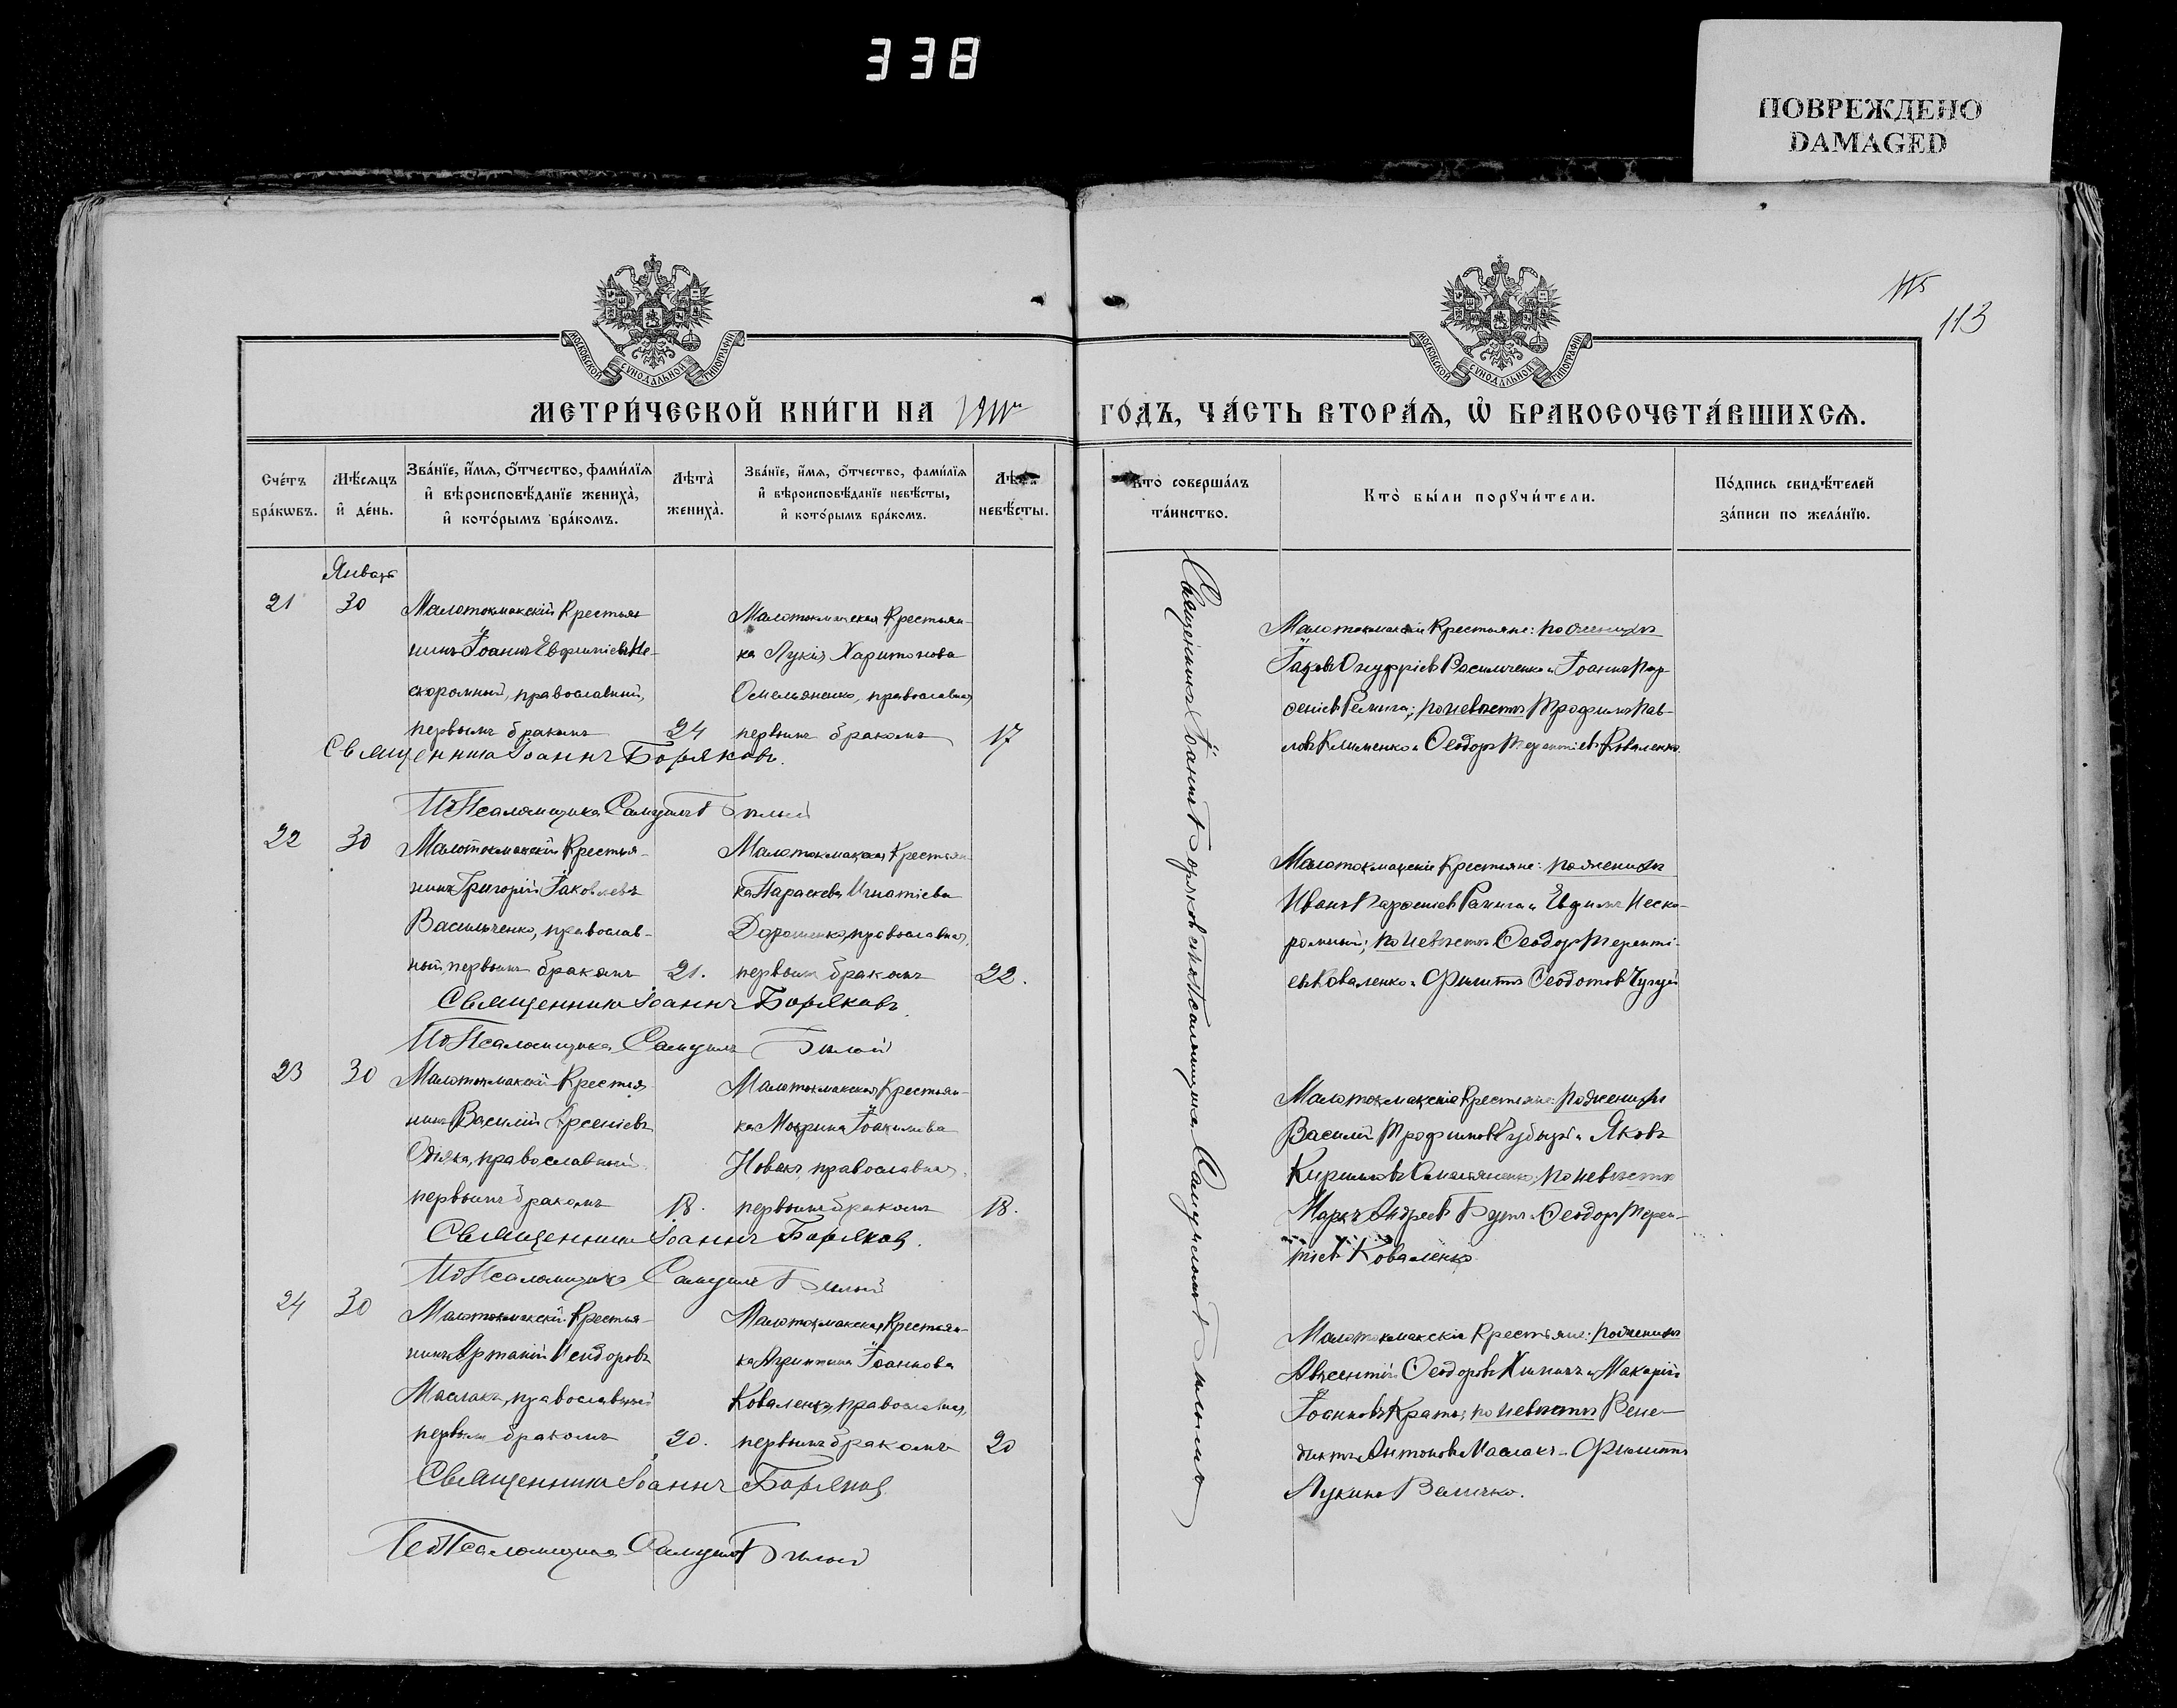 338
ПОВРЕЖДЕНО
DAMAGED
115
113
МОСКОВСКОЙ СѴНОДАЛЬНОЙ ТИПОГРАФІИ
МОСКОВСКОЙ СѴНОДАЛЬНОЙ ТИПОГРАФІИ
МЕТРИ́ЧЕСКОЙ КНИ́ГИ НА 1911 ГО́ДЪ, ЧА́СТЬ ВТОРА́Ѧ, Ѡ БРАКОСОЧЕТА́ВШИХСѦ.
Сче́тъ бра́кѡвъ.
Мѣ́сѧцъ и де́нь.
Зва́нїе, и́мѧ, ѻ́тчество, фами́лїѧ и вѣроисповѣ́данїе жениха̀, и кото́рымъ бра́комъ.
Лѣта̀ жениха̀.
Зва́нїе, и́мѧ, ѻ́тчество, фами́лїѧ и вѣроисповѣ́данїе невѣ́сты, и кото́рымъ бра́комъ.
Лѣта̀ невѣ́сты.
Кто̀ соверша́лъ та́инство.
Кто̀ бы́ли порꙋчи́тели.
По́дпись свидѣ́телей за́писи по жела́нїю.
Январь
21 30
Малотокмакскій Крестья-
нинъ Іоаннъ Евфиміевъ Не-
скоромный, православный,
первымъ бракомъ 24
Малотокмакская Крестьян-
ка Лукія Харитонова
Омельяненко, православная
первымъ бракомъ 17
Малотокмакскіе Крестьяне: по женихѣ
Іаковъ Онуфріевъ Васильченко и Іоаннъ Пар-
феніевъ Рачига; по невѣстѣ Трофимъ Пав-
ловъ Клименко и Ѳеодоръ Терентіевъ Коваленко
Священникъ Іоаннъ Боряковъ.
Ид Псаломщика Самуилъ Билый
22 30
Малотокмакскій Крестья-
нинъ Григорій Іаковлевъ
Васильченко, православ-
ный, первымъ бракомъ 21.
Малотокмакская Крестьян-
ка Параскева Игнатіева
Дорошенко, православная,
первымъ бракомъ 22.
Малотокмакскіе Крестьяне: по женихѣ
Иванъ Парфеніевъ Рачига и Евфимъ Неско-
ромный; по невѣстѣ Ѳеодоръ Теренті-
евъ Коваленко и Филиппъ Ѳеодотовъ Чугуй
Священникъ Іоаннъ Боряковъ.
Ид Псаломщика Самуилъ Билый
23 30
Малотокмакскій Крестья-
нинъ Василій Арсеніевъ
православный
первымъ бракомъ 18.
Малотокмакская Крестьян-
ка Мокрина Іоакимова
Новакъ, православная,
первымъ бракомъ 18.
Малотокмакскіе Крестьяне: по женихѣ
Василій Трофимовъ и Яковъ
Кирилловъ Омельяненко; по невѣстѣ
Маркъ Андреевъ Бутъ и Ѳеодоръ Терен-
тіевъ Коваленко
Священникъ Іоаннъ Боряковъ.
Ид Псаломщика Самуилъ Билый
24 30
Малотокмакскій Крестья-
нинъ Артемій Исидоровъ
Маслакъ, православный
первымъ бракомъ 20.
Малотокмакская Крестьян-
ка Агриппина Іоаннова
Коваленко, православная,
первымъ бракомъ 20
Малотокмакскіе Крестьяне: по женихѣ
Авксентій Ѳеодоровъ и Макарій
Іоанновъ по невѣстѣ Вене-
диктъ Антоновъ Маслакъ и Филиппъ
Лукинъ Величко.
Священникъ Іоаннъ Боряковъ
Ид Псаломщика Самуилъ Билый
Священникъ Іоаннъ Боряковъ съ Псаломщикомъ Самуиломъ Билымъ